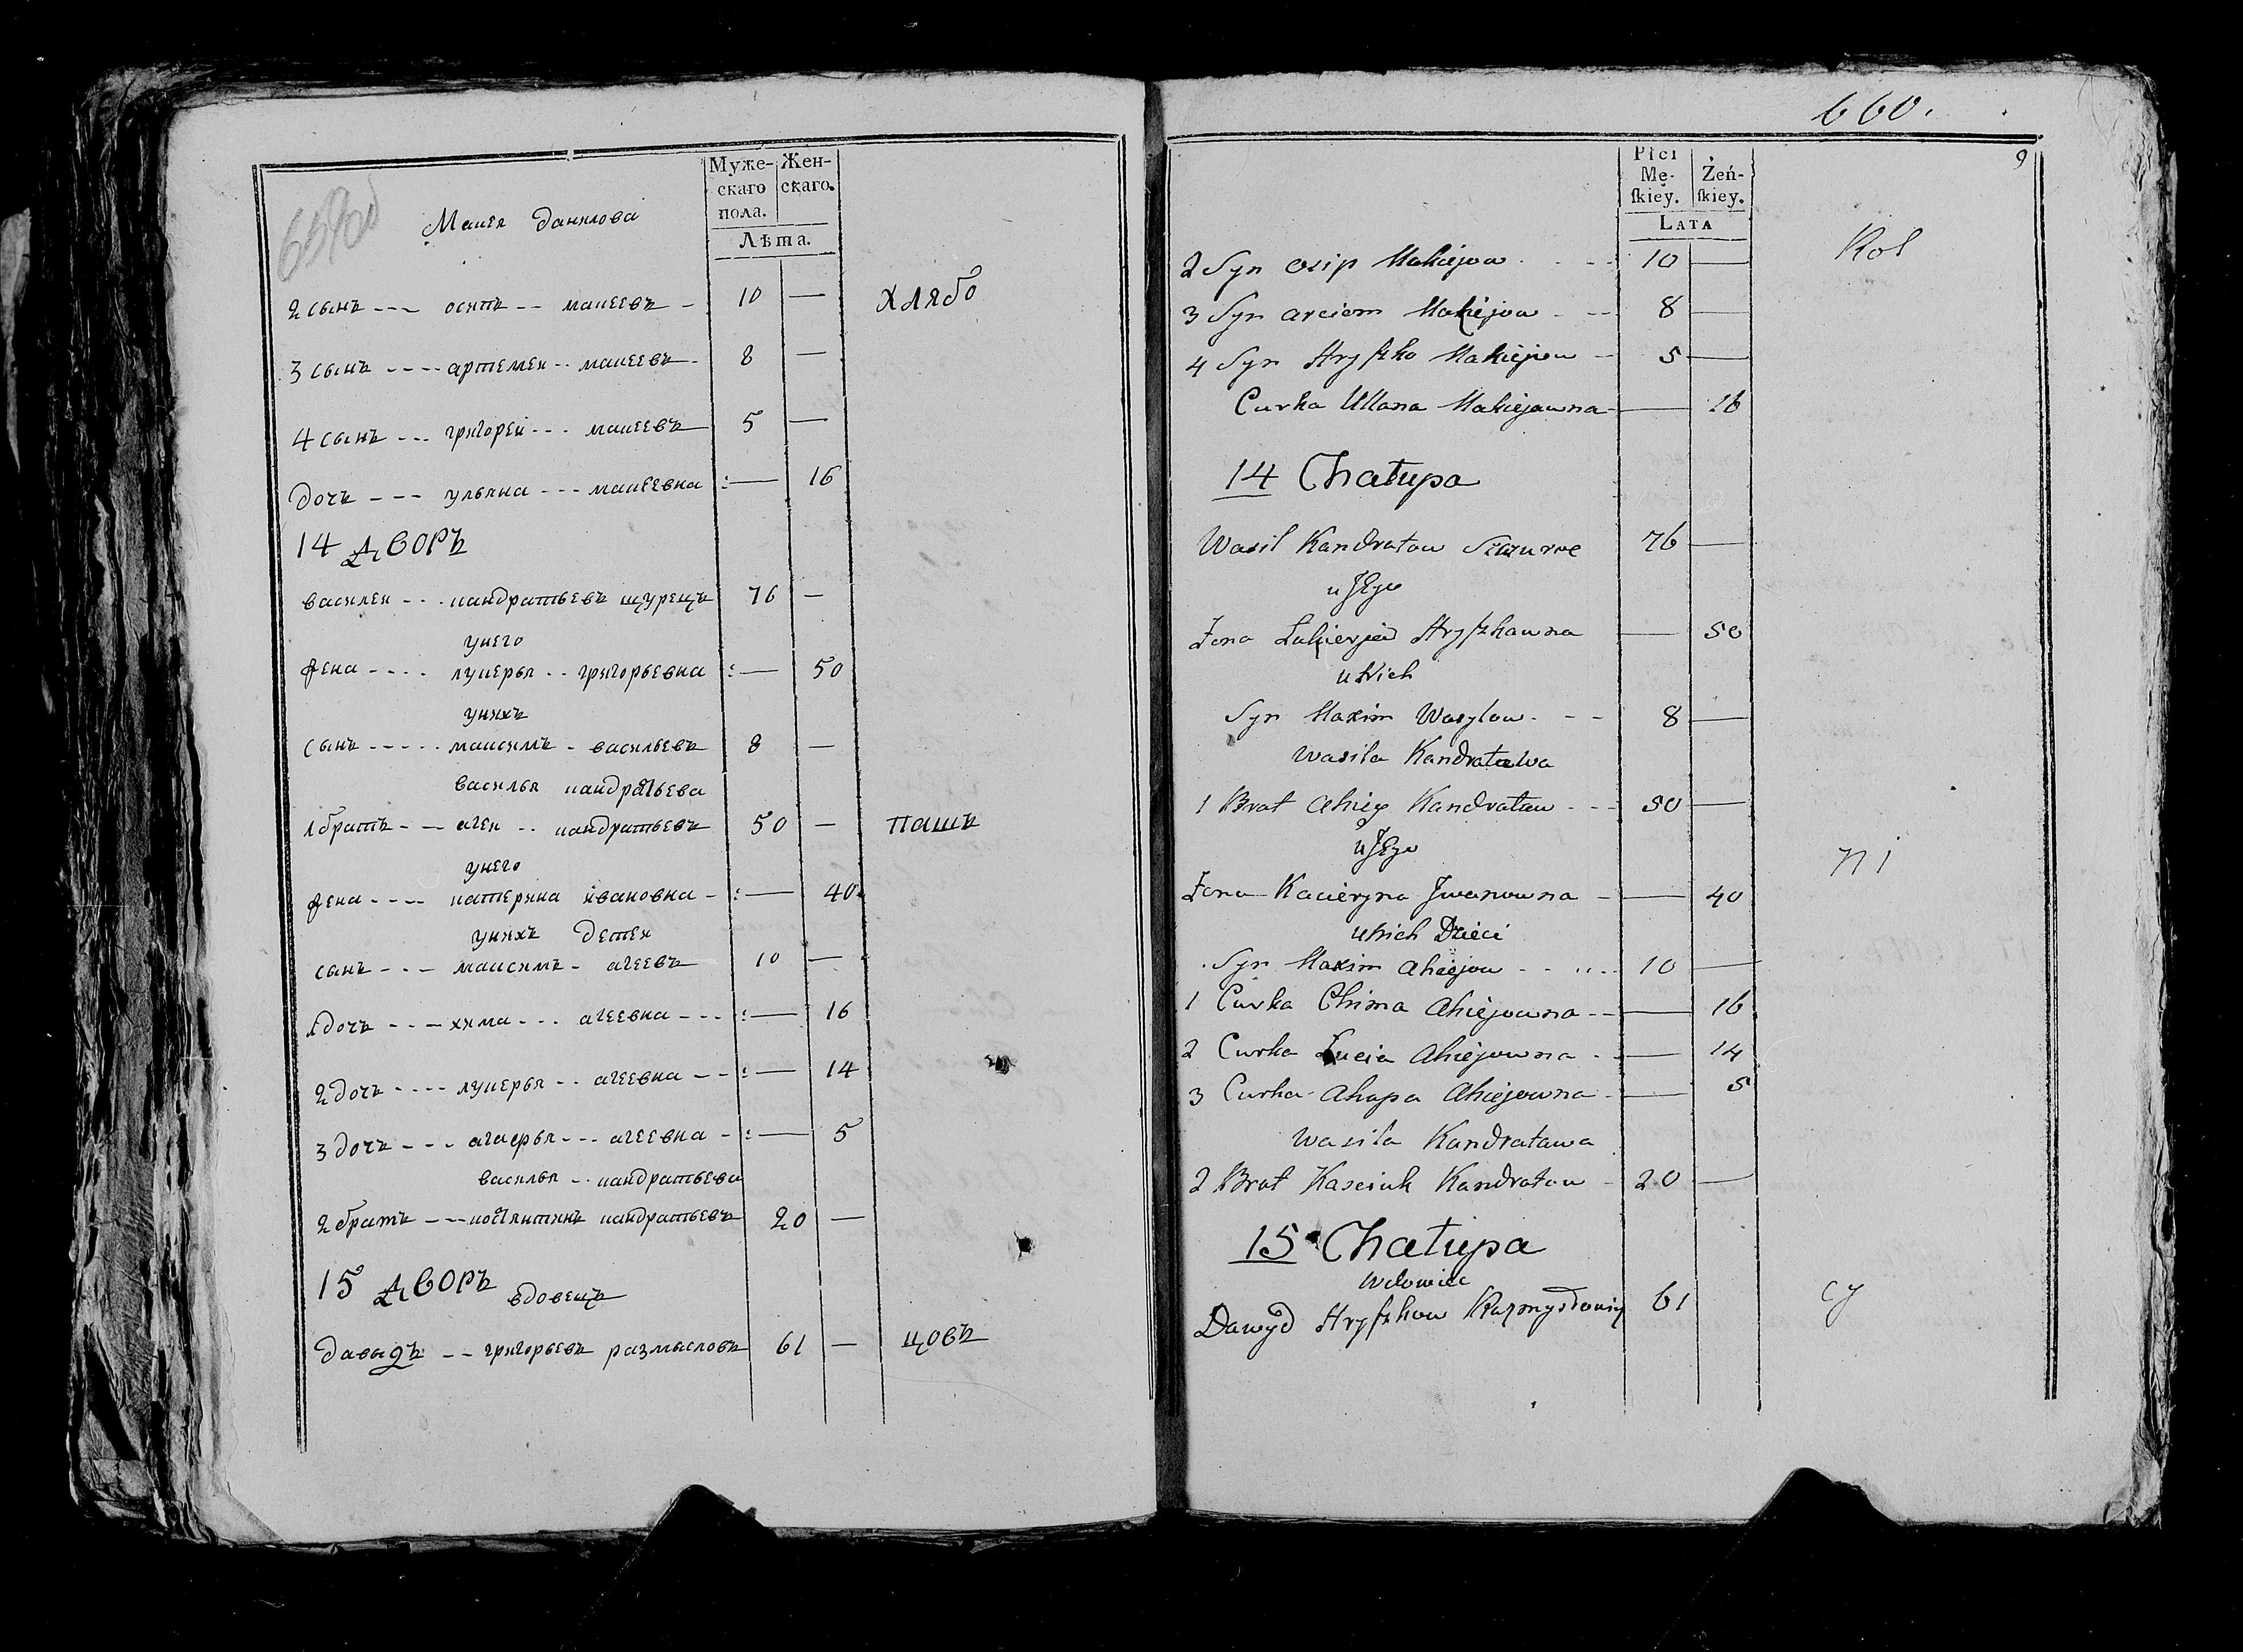 Муже-
скаго
пола.
Жен-
скаго.
Лѣта.
Макея Данилова
2 сынъ --- осипъ -- макеевъ - 10 — хлябо
3 сынъ ---- артемеи -- макеевъ - 8 —
4 сынъ --- григореи --- макеевъ 5 —
дочъ --- ульяна --- макеевна :— 16
14 дворъ
василеи --- кандратьевъ щурецъ 76 —
унего
жена ---- лукерья -- григорьевна :— 50
унихъ
сынъ ----- максимъ - васильевъ 8 —
василья кандратьева
1 братъ -- агеи -- кандратьевъ 50 — пашъ
унего
жена ---- катерина ивановна - :— 40
унихъ детеи
сынъ --- максимъ - агеевъ 10 —
1 дочъ --- хима --- агеевна --- :— 16
2 дочъ ---- лукерья -- агеевна -- :— 14
3 дочъ --- --- агеевна - :— 5
василья -- кандратьева
2 братъ -- кандратьевъ 20 —
15 дворъ вдовецъ
давыдъ -- григорьевъ размысловъ 61 — цовъ
660.
9
Płci
Mę-
ſkiey.
Żeń-
ſkiey.
LATA
2 Syn osip Makiejow - - - 10 — Rol
3 Syn arciom Makiejow - -- 8 —
4 Syn Hryſzko Makiejow - 5 —
Curka Ullana Makiejowna - — 16
14 Chałupa
Wasil Kandratow 76 —
u Jego
Żona Lukierja Hryſzkowna — 50
u Nich
Syn Maxim Wasylow - -- 8 —
Wasila Kandratawa
1 Brat Ahiey Kandratow - -- 50 —
u Jego
ni
Żona Kacieryna Jwanowna - — 40
u Nich Dzieci
Syn Maxim Ahiejow - - ... 10 —
1 Curka Chima Ahiejowna -- — 16
2 Curka Ahiejowna - — 14
3 Curka Ahapa Ahiejowna - — 5
Wasila Kandratawa
2 Brat Kasciuk Kandratow - 20 —
15 Chałupa
Wdowiec
Dawyd Hryſzkow 61 cy